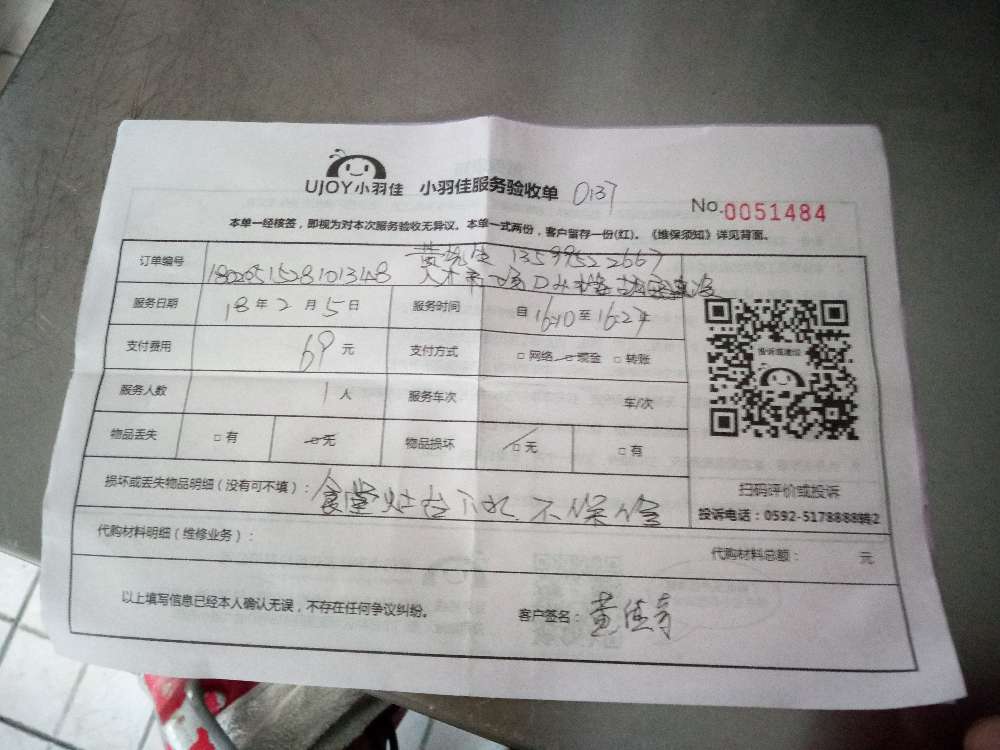 UJOY小羽佳 小羽佳服务验收单 0137
No.0051484
本单一经核签，即视为对本次服务验收无异议。本单一式两份，客户留存一份(红)。《维保须知》详见背面。
订单编号 1802051528101348 13599522667
服务日期 18年2月5日 服务时间 自16:10至16:27
支付费用 69元 支付方式 □网络 □现金 □转账
服务人数 1人 服务车次 车/次
物品丢失 □有 □无 物品损坏 □无 □有
损坏或丢失物品明细（没有可不填）：食堂灶台下水.不保修
扫码评价或投诉
投诉电话：0592-5178888转2
代购材料明细（维修业务）： 代购材料总额： 元
以上填写信息已经本人确认无误，不存在任何争议纠纷。 客户签名：黄佳